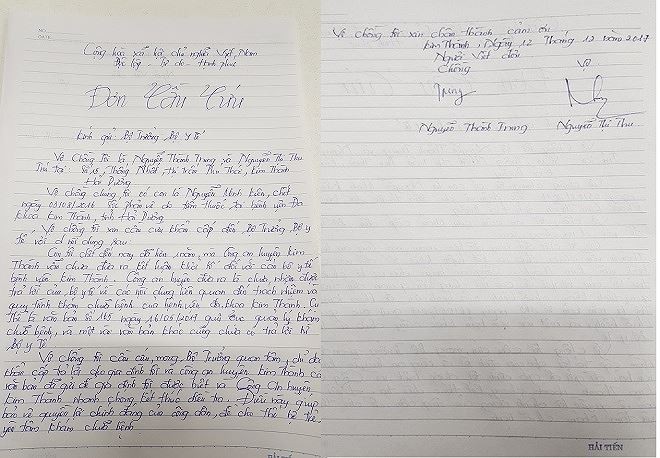 Cộng hòa xã hội chủ nghĩa Việt Nam
Độc lập - Tự do - Hạnh phúc
Đơn Cầu Cứu
Kính gửi: Bộ Trưởng, Bộ Y tế
Vợ Chồng Tôi là Nguyễn Thành Trung và Nguyễn Thị Thu
Trú tại: Thống Nhất, thị trấn Phú Thái, Kim Thành
Hải Dương
Vợ chồng chúng tôi có con là Nguyễn Minh Kiên, chết
ngày 08/08/2016 do tiêm thuốc tại bệnh viện Đa
khoa Kim Thành, tỉnh Hải Dương
Vợ chồng tôi xin cầu cứu khẩn cấp đến Bộ Trưởng, Bộ y
tế với nội dung sau:
Con tôi chết đến nay đã hơn năm, mà Công an huyện Kim
Thành vẫn chưa đưa ra kết luận khởi tố đối với cán bộ y tế
bệnh viện Kim Thành. Công an huyện đưa ra là chưa nhận được
trả lời của bộ y tế về các nội dung liên quan đến trách nhiệm và
quy trình khám chữa bệnh của bệnh viện đa khoa Kim Thành. Cụ
thể là văn bản số 165 ngày 16/05/2017 quản lý khám
chữa bệnh, và một văn bản khác cũng chưa có trả lời từ
Bộ y tế
Vợ chồng tôi cầm cân, mong Bộ Trưởng quan tâm, chỉ đạo
khẩn cấp trả lời cho gia đình tôi và công an huyện Kim Thành có
văn bản để gửi để gia đình tôi được biết và Công An huyện
Kim Thành nhanh chóng kết thúc điều tra. Điều này giúp
bảo vệ quyền lợi chính đáng của công dân, để cho
yên tâm khám chữa bệnh.
Vợ chồng tôi xin chân thành cảm ơn
Kim Thành, Ngày 12 Tháng 12 năm 2017
Người viết đơn
Chồng Vợ
Trung
Nguyễn Thành Trung Nguyễn Thị Thu
HẢI TIẾN
HẢI TIẾN